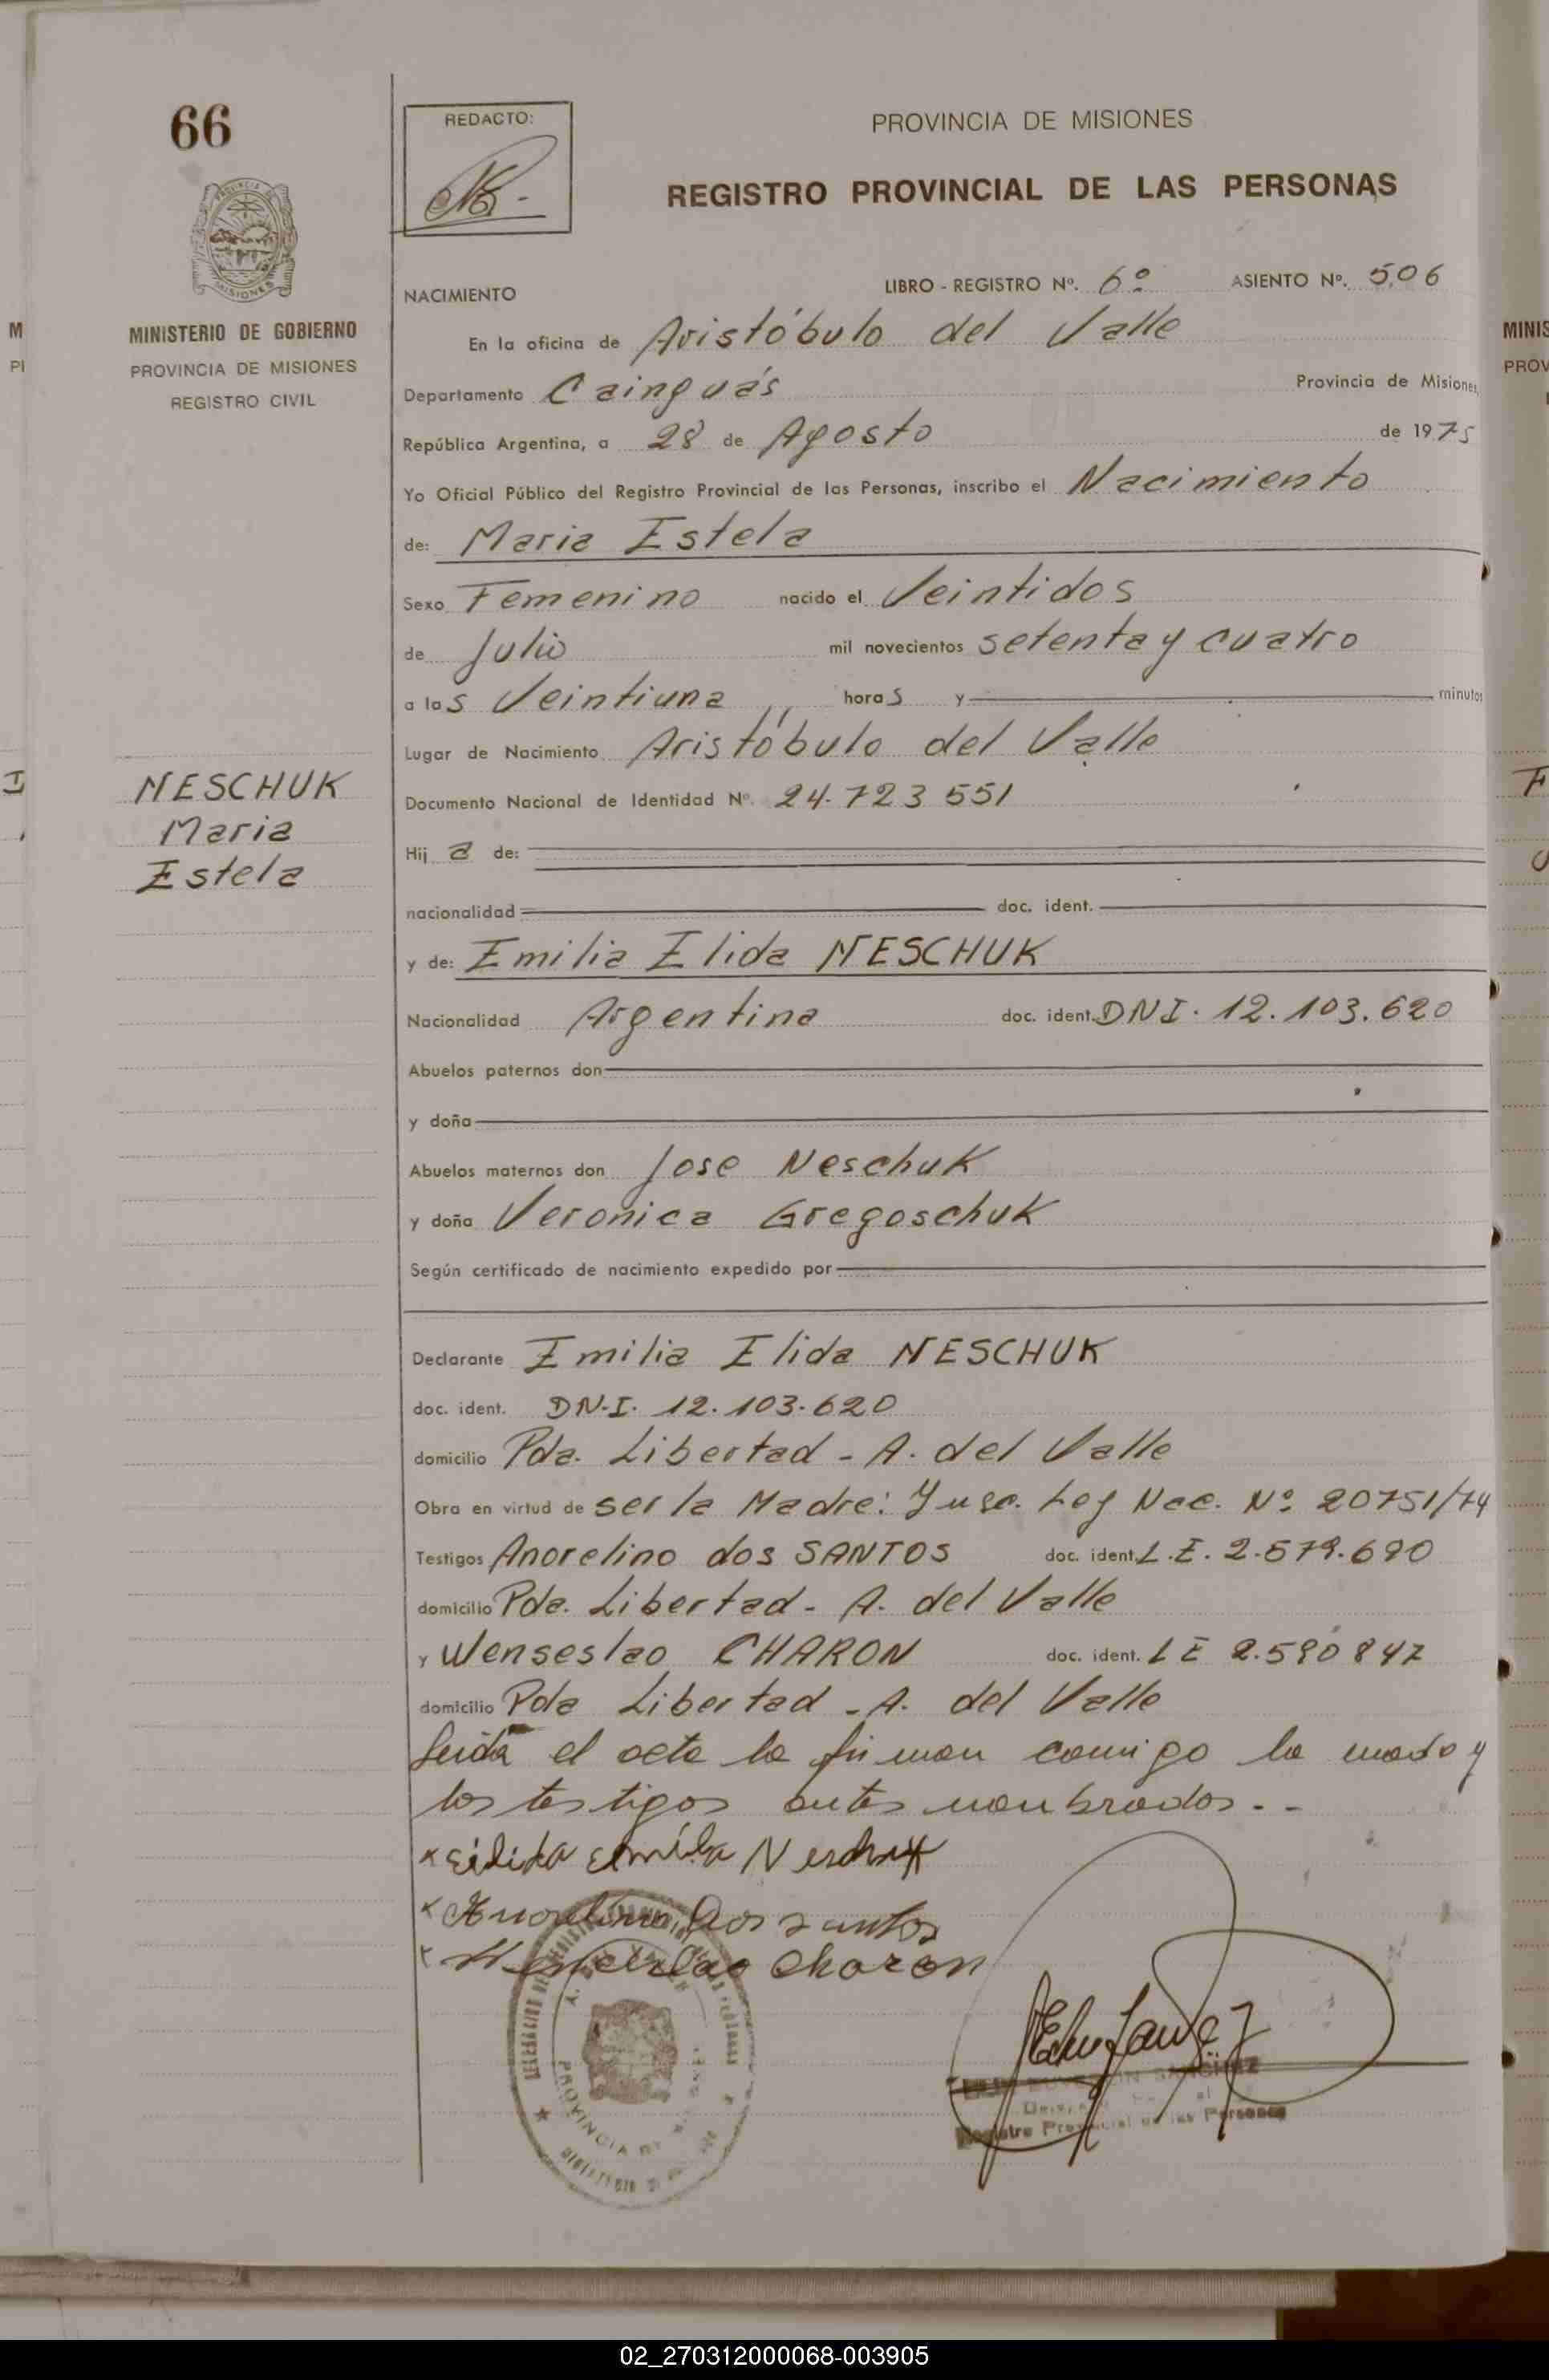 66
REDACTO:
PROVINCIA DE MISIONES
REGISTRO PROVINCIAL DE LAS PERSONAS
MINISTERIO DE GOBIERNO
PROVINCIA DE MISIONES
REGISTRO CIVIL
NACIMIENTO LIBRO - REGISTRO Nº. 6º ASIENTO Nº. 506
En la oficina de Aristóbulo del Valle
Departamento Cainguás Provincia de Misiones,
República Argentina, a 28 de Agosto de 1975
Yo Oficial Público del Registro Provincial de las Personas, inscribo el Nacimiento
de: Maria Estela
Sexo Femenino nacido el Veintidos
de Julio mil novecientos setenta y cuatro
a las Veintiuna horas y minutos
Lugar de Nacimiento Aristóbulo del Valle
NESCHUK
Maria
Estela
Documento Nacional de Identidad Nº. 24.723 551
Hij a de:
nacionalidad doc. ident.
y de: Emilia Elida NESCHUK
Nacionalidad Argentina doc. ident. DNI. 12.103.620
Abuelos paternos don
y doña
Abuelos maternos don Jose Neschuk
y doña Veronica Gregoschuk
Según certificado de nacimiento expedido por
Declarante Emilia Elida NESCHUK
doc. ident. DN.I. 12.103.620
domicilio Pda. Libertad - A. del Valle
Obra en virtud de ser la Madre: Ynsc. Ley Nac. Nº 20751/74
Testigos Anorelino dos SANTOS doc. ident. L.E. 2.579.690
domicilio Pda. Libertad - A. del Valle
y Wenseslao CHARON doc. ident. LE 2.590 847
domicilio Pda Libertad - A. del Valle
Leida el acta la firman comigo la madre y
los testigos antes nombrados. - -
x Elida Emilia Neschuk
x Anorelino dos santos
x Wenceslao Charon
PROVINCIA DE
Registro Provincial de las Personas
02_270312000068-003905